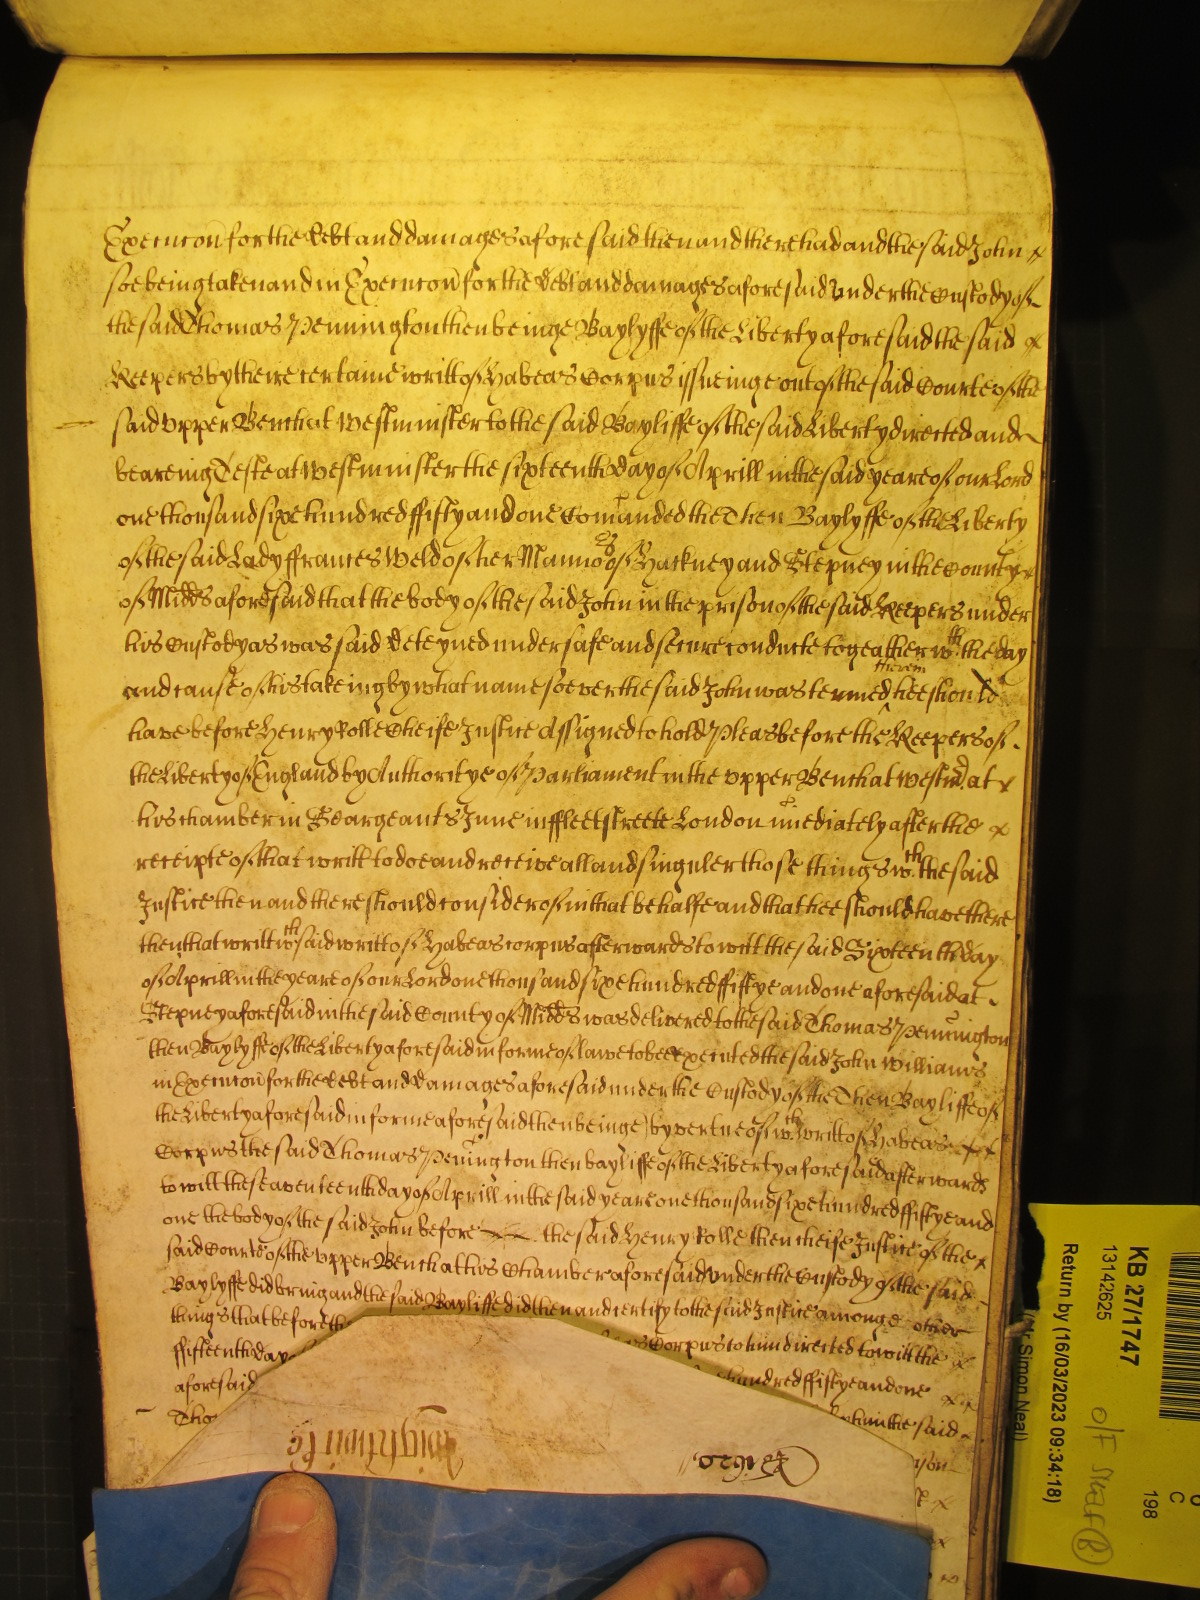 Execucon for the debt and damages aforesaid then and there had and the said John
soe being taken and in Execucon for the debt and damages aforesaid under the Custody of
the said Thomas Pennington then beinge Baylyffe of the Liberty aforesaid the said
Keepers by theire certaine writt of Habeas Corpus issueinge out of the said Courte of the
said Upper Bench at Westminster to the said Bayliffe of the said Liberty directed and
beareing Teste at Westminster the sixteenth day of Aprill in the said yeare of our Lord
one thousand sixe hundred fifty and one Comanded the Then Baylyffe of the Liberty
of the said Lady ffrances Weld of her Mannors of Hackney and Stepney in the County
of Midds aforesaid that the body of the said John in the prison of the said Keepers under
his Custody as was said deteyned under safe and secure conducte togeather wth the day
and cause of his takeing by what name soever the said John was termed therein hee should
have before Henry Rolle Cheife Justice Assigned to hold Pleas before the Keepers of
the Liberty of England by Authoritye of Parliament in the Upper Bench at Westm at
his chamber in Seargeants Inne in ffleetstreete London imediately after the
receipte of that writt to doe and receive all and singuler those things wch the said
Justice then and there should consider of in that behalfe and that hee should have there
then that writt wch said writt of Habeas corpus afterwards to witt the said Sixteenth day
of Aprill in the yeare of our Lord one thousand sixe hundred fiftye and one aforesaid at
Stepney aforesaid in the said County of Midds was delivered to the said Thomas Pennington
then Baylyffe of the Liberty aforesaid in forme of lawe to bee executed the said John Williams
in Execucon for the debt and damages aforesaid under the Custody of the Then Bayliffe of
the Liberty aforesaid in forme aforesaid then beinge) by vertue of wch writt of Habeas
Corpus the said Thomas Penington then bayliffe of the Liberty aforesaid afterwards
to witt the seaventeenth day of Aprill in the said yeare one thousand sixe hundred fiftye and
one the body of the said John before the said Henry Rolle then cheife Justice of the
said Courte of the Upper Bench at his Chamber aforesaid under the Custody of the said
Baylyffe did bring and the said Bayliffe did then and certify to the said Justice amonge other
things that before th Corpus to him directed to witt the
ffifteenth day hundred fiftye and one
aforesaid the said
Tho
KB 27/1747
13142625
Return by (16/03/2023 09:34:18)
Simon Neal)
198
C
O/F